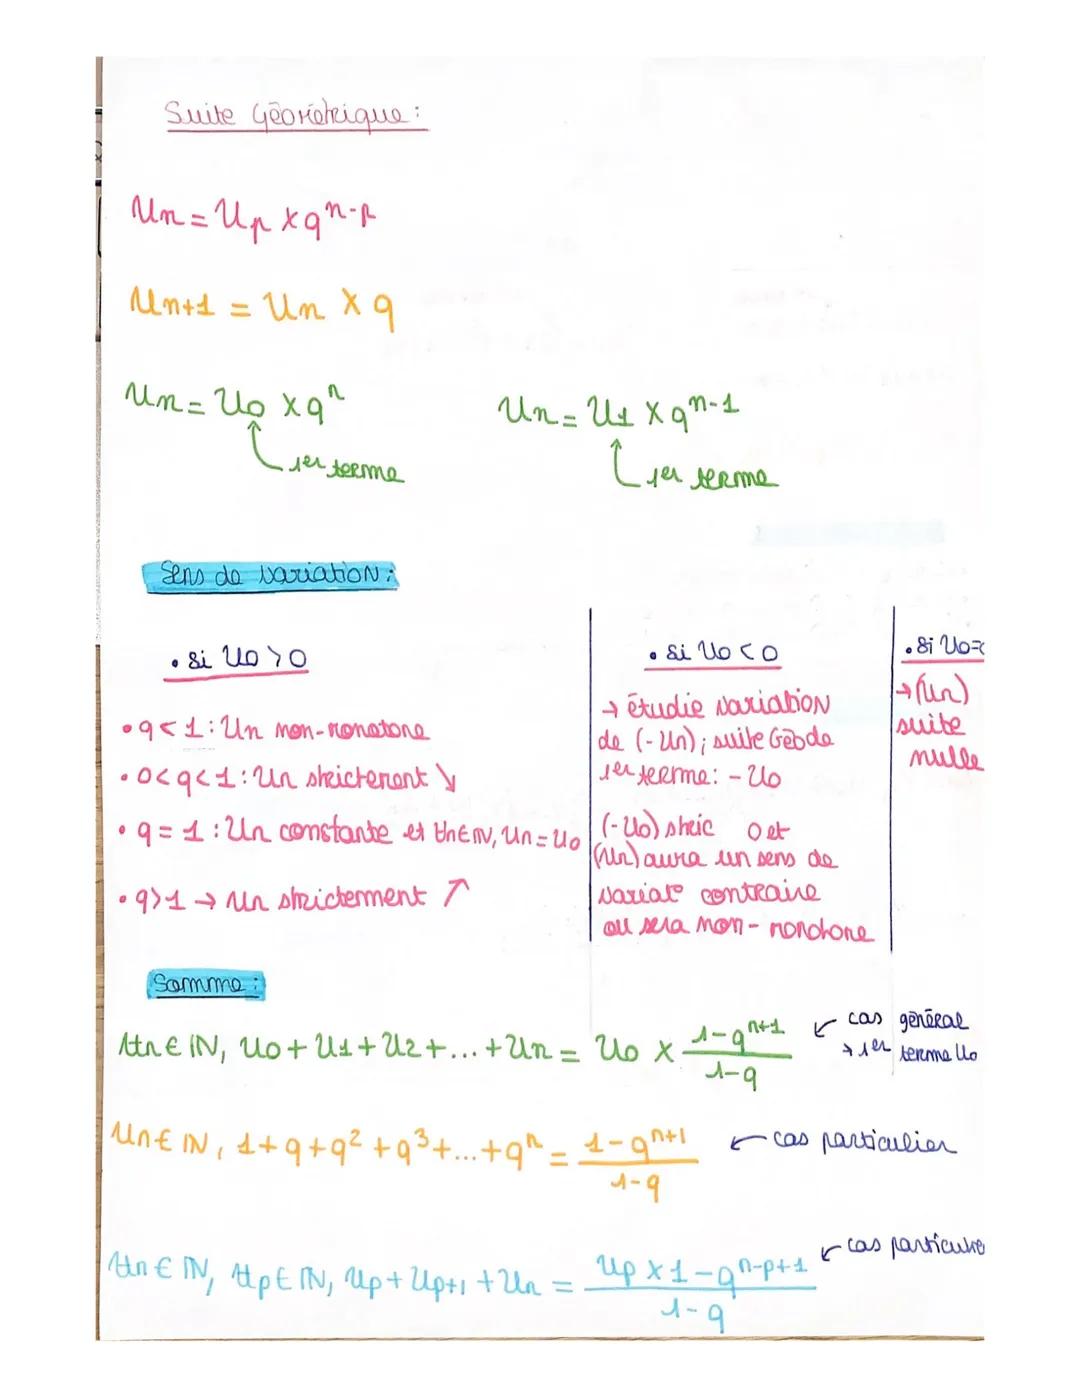 Suite Géométrique:
Un = Up × q^n-p
Un+1 = Un × q
Un = U0 × q^n
1er terme
Un = U1 × q^n-1
1er terme
Sens de variation:
• si U0 > 0
• q < 1 : Un non-monotone
• 0 < q < 1 : Un strictement ↘
• q = 1 : Un constante et ∀n∈ℕ, Un = U0
• q > 1 → Un strictement ↗
• si U0 < 0
→ étudie variation
de (-Un) ; suite Géo de
1er terme : - U0
(-U0) stric 0 et
(Un) aura un sens de
variat° contraire
ou sera non-monotone
• Si U0=
→ (Un)
suite
nulle
Somme :
∀n ∈ ℕ, U0 + U1 + U2 + ... + Un = U0 × (1-q^n+1)/(1-q)
↙ cas général
→ 1er terme U0
Un ∈ ℕ, 1 + q + q² + q³ + ... + q^n = (1-q^n+1)/(1-q)
← cas particulier
∀n ∈ ℕ, ∀p ∈ ℕ, Up + Up+1 + Un = (Up × 1-q^n-p+1)/(1-q)
↙ cas particulie